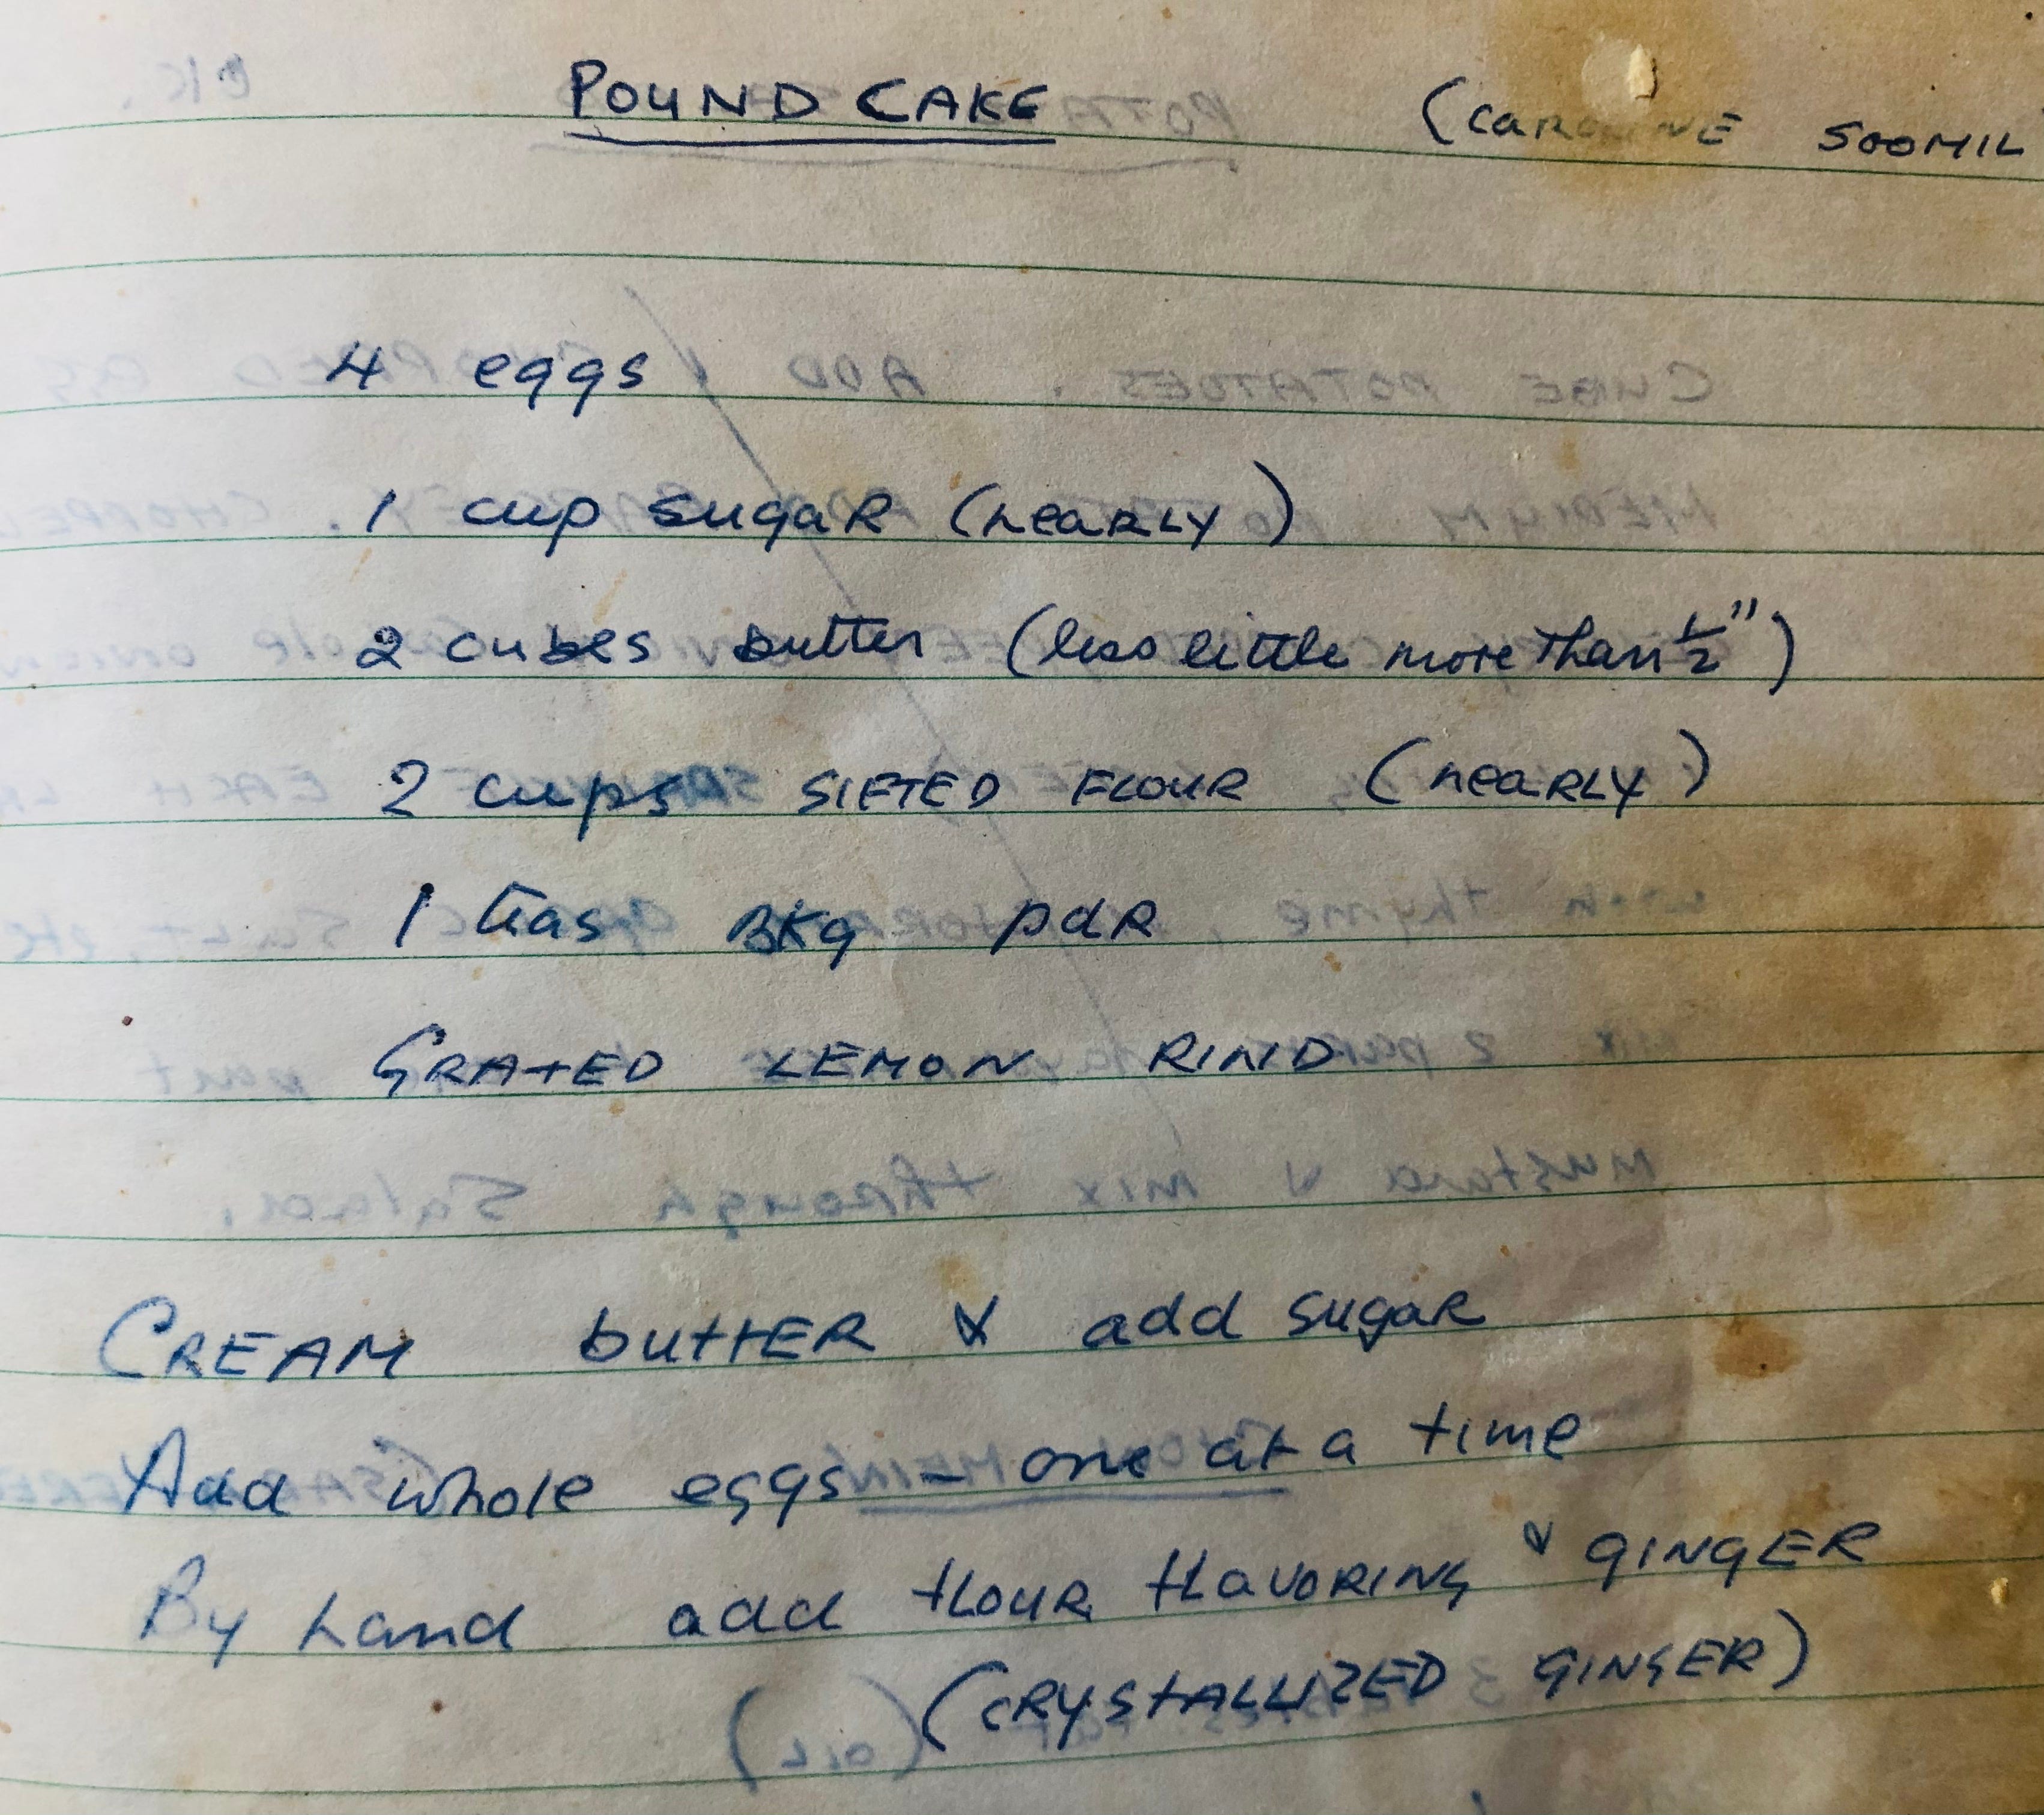 POUND CAKE (CAROLINE SOOMIL
4 eggs
1 cup sugar (nearly)
2 cubes butter (less little more than 1/2")
2 cups SIFTED FLOUR (nearly)
1 teas Bkg pdr
GRATED LEMON RIND
CREAM butter & add sugar
Add whole eggs - one at a time
By hand add flour flavoring & GINGER
(CRYSTALLIZED GINGER)